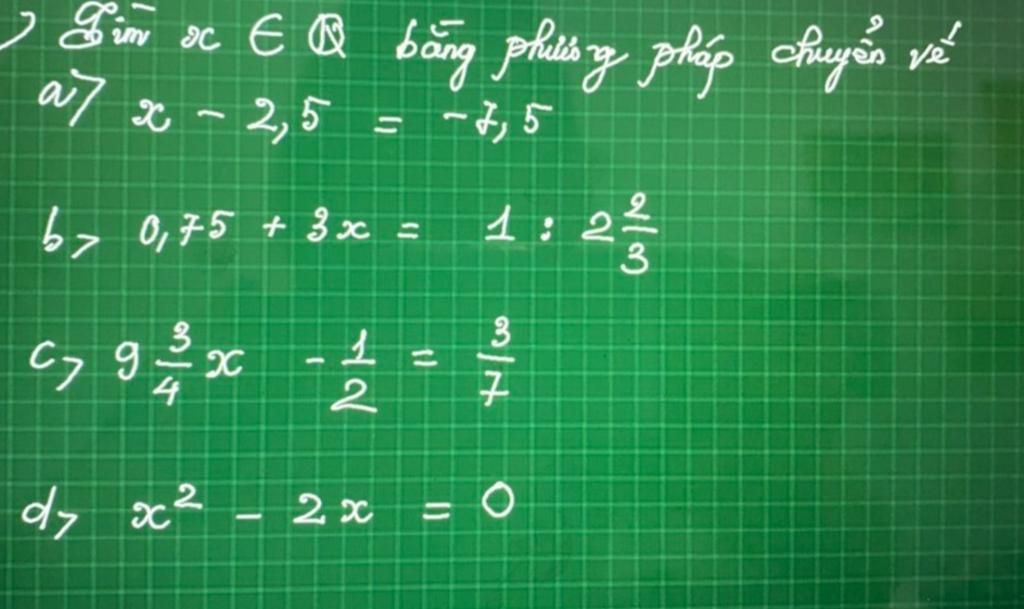 ) Tìm x ∈ ℚ bằng phương pháp chuyển vế
a> x - 2,5 = -7,5
b> 0,75 + 3x = 1 : 2 2/3
c> 9 3/4 x - 1/2 = 3/7
d> x² - 2x = 0